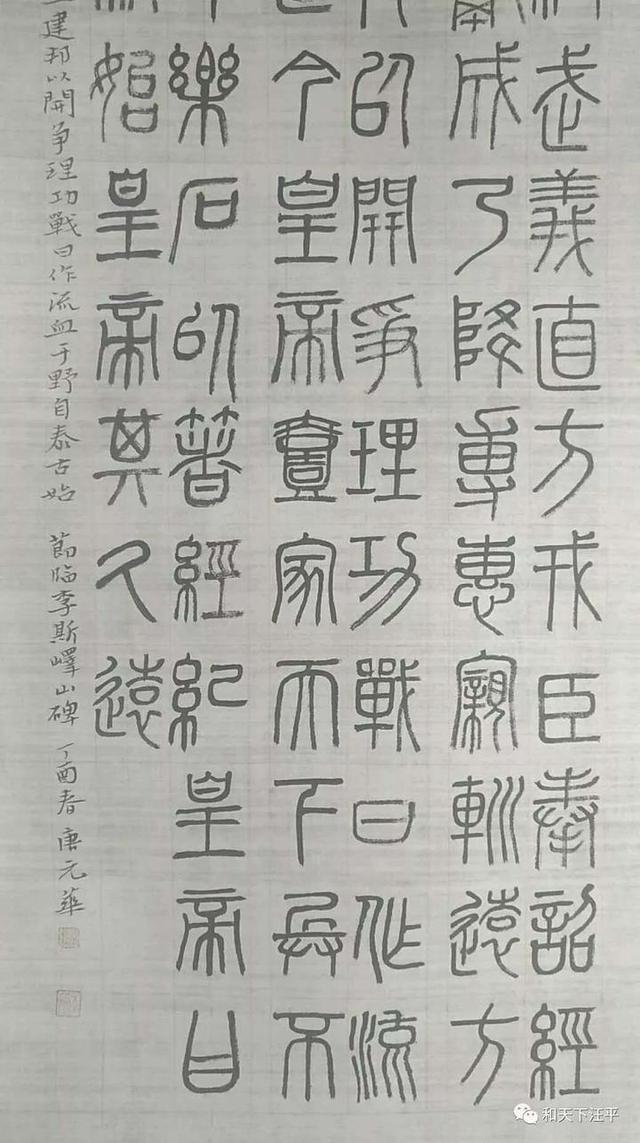 武義直方戎臣奉詔經
成乃降專惠寴䡅遠方
以開爭理功戰日作流
今皇帝壹家天下兵不
樂石以著經紀 皇帝曰
始皇帝其久遠
建邦以開争理功戰日作流血于野自泰古始 節臨李斯嶧山碑 丁酉春 唐元華
和天下汪平